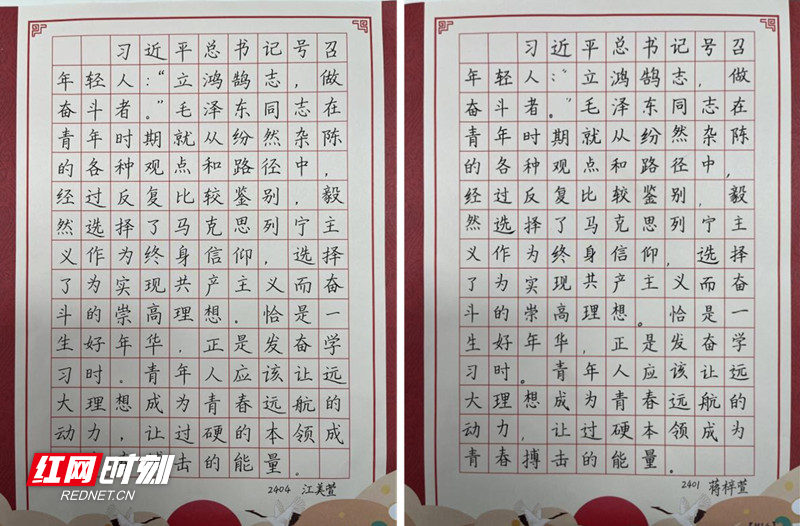 习近平总书记号召
年轻人：“立鸿鹄志，做
奋斗者。”毛泽东同志在
青年时期就从纷然杂陈
的各种观点和路径中，
经过反复比较鉴别，毅
然选择了马克思列宁主
义作为终身信仰，选择
了为实现共产主义而奋
斗的崇高理想。恰是一
生好年华，正是发奋学
习时。青年人应该让远
大理想成为青春远航的
动力，让过硬的本领成
击的能量。
2404 江美萱
红网时刻
REDNET.CN
习近平总书记号召
年轻人：“立鸿鹄志，做
奋斗者。”毛泽东同志在
青年时期就从纷然杂陈
的各种观点和路径中，
经过反复比较鉴别，毅
然选择了马克思列宁主
义作为终身信仰，选择
了为实现共产主义而奋
斗的崇高理想。恰是一
生好年华，正是发奋学
习时。青年人应该让远
大理想成为青春远航的
动力，让过硬本领成为
青春搏击的能量。
2401 蒋梓萱